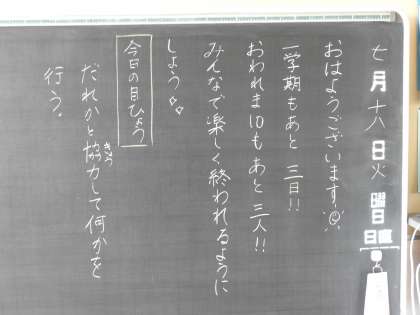 七月十八日火曜日
日直
おはようございます!!
一学期もあと三日!!
おわれま10もあと三人!!
みんなで楽しく終われるように
しょう
今日の目ひょう
だれかと協力して何かを
きょう
行う。